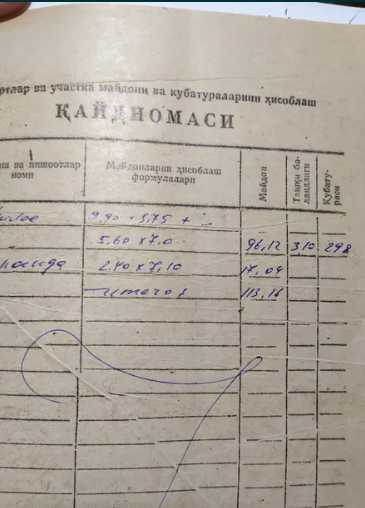 ва участка майдони ва кубатураларини ҳисоблаш
ҚАЙДНОМАСИ
ва иншоотлар номи
Майдонларни ҳисоблаш формулалари
Майдон
Ташқи баландлиги
Кубатураси
5,60 x 7,0 96,12 310 298
2,40 x 7,10 17,04
итого 113,16